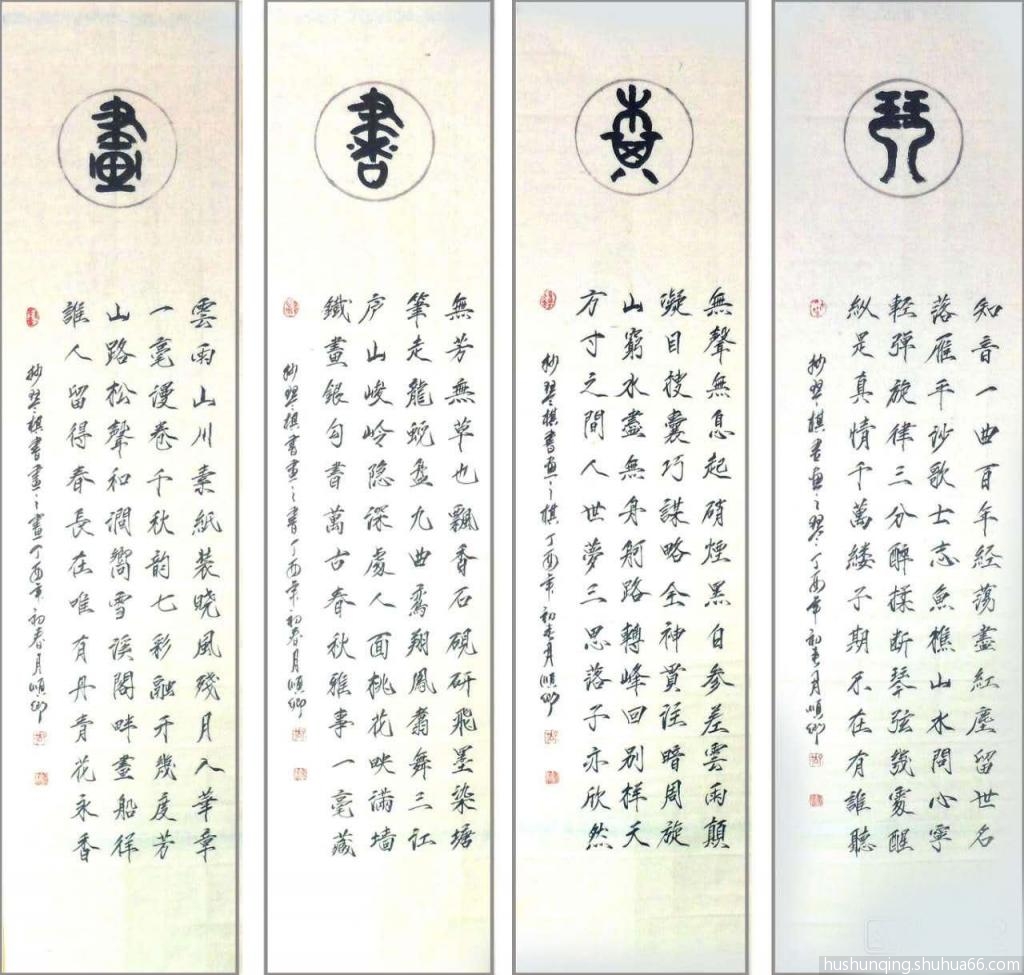 琴
知音一曲百年经荡盡紅塵留世名
落雁平沙歌士志魚樵山水問心寧
輕彈旋律三分醉揉断琴弦幾處醒
縱是真情千萬縷子期不在有誰聽
抄琴棋書画之琴丁酉年初春月順卿
棋
無聲無息起硝煙黑白參差雲雨顛
凝目搜囊巧謀略全神貫注暗周旋
山窮水盡無舟舸路轉峰回别樣天
方寸之間人世夢三思落子亦欣然
抄琴棋書画之棋丁酉年初春月順卿
書
無芳無草也飄香石硯研飛墨染塘
筆走龍蜕盘九曲鸾翔鳳翥舞三江
庐山峻岭隐深處人面桃花映滿墙
鐵畫銀勾書萬古春秋雅事一毫藏
抄琴棋書画之書丁酉年初春月順卿
畫
雲雨山川素紙装晓風殘月入華章
一毫漫卷千秋韵七彩融开幾度芳
山路松聲和澗響雪溪閣畔畫船徉
誰人留得春長在唯有丹青花永香
抄琴棋書畫之畫丁酉年初春月順卿
hushunqing.shuhua66.com